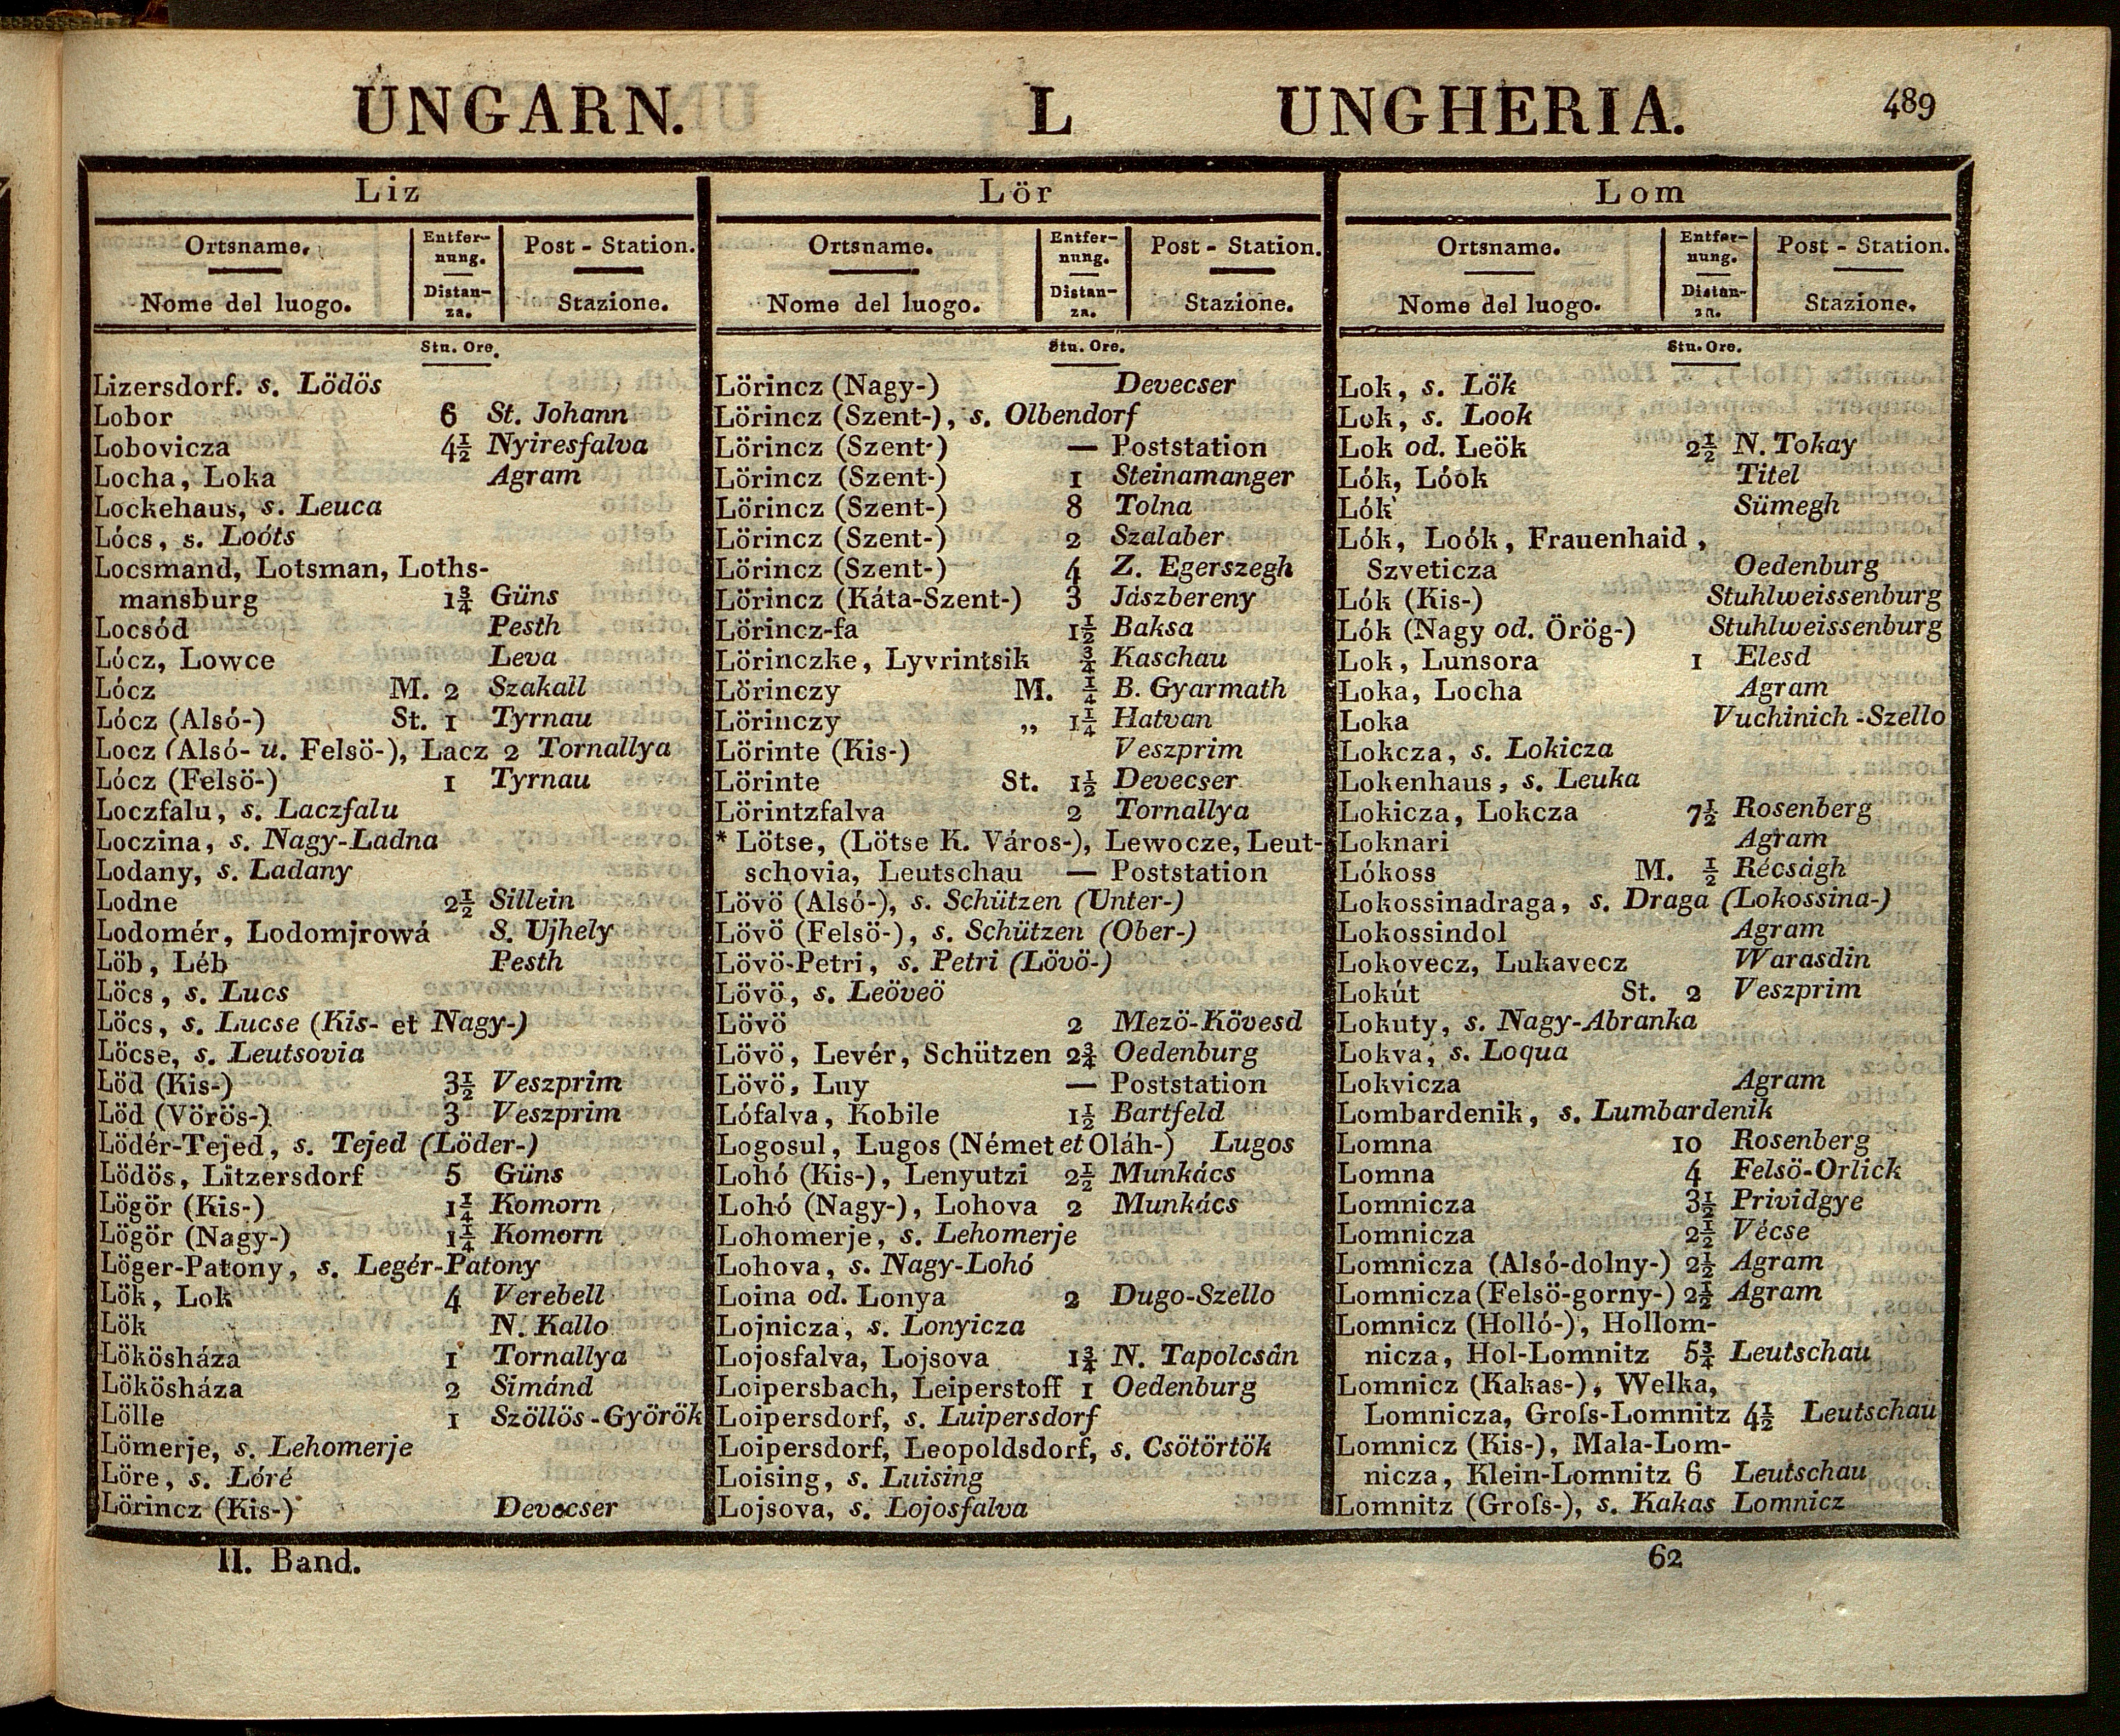 UNGARN. L UNGHERIA. 489
Liz
Ortsname. Entfer-nung. Post - Station.
Nome del luogo. Distan-za. Stazione.
Stu. Ore.
Lizersdorf. s. Lödös
Lobor 6 St. Johann
Lobovicza 4½ Nyiresfalva
Locha, Loka Agram
Lockehaus, s. Leuca
Lócs, s. Loóts
Locsmand, Lotsman, Loths-
mansburg 1¾ Güns
Locsód Pesth
Lócz, Lowce Leva
Lócz M. 2 Szakall
Lócz (Alsó-) St. 1 Tyrnau
Locz (Alsó- u. Felsö-), Lacz 2 Tornallya
Lócz (Felsö-) 1 Tyrnau
Loczfalu, s. Laczfalu
Loczina, s. Nagy-Ladna
Lodany, s. Ladany
Lodne 2½ Sillein
Lodomér, Lodomjrowá S. Ujhely
Löb, Léb Pesth
Löcs, s. Lucs
Löcs, s. Lucse (Kis- et Nagy-)
Löcse, s. Leutsovia
Löd (Kis-) 3½ Veszprim
Löd (Vörös-) 3 Veszprim
Lödér-Tejed, s. Tejed (Löder-)
Lödös, Litzersdorf 5 Güns
Lögör (Kis-) 1¼ Komorn
Lögör (Nagy-) 1¼ Komorn
Löger-Patony, s. Legér-Patony
Lök, Lok 4 Verebell
Lök N. Kallo
Lökösháza 1 Tornallya
Lökösháza 2 Simánd
Lölle 1 Szöllös-Györök
Lömerje, s. Lehomerje
Löre, s. Lóré
Lörincz (Kis-) Devecser
Lör
Ortsname. Entfer-nung. Post - Station.
Nome del luogo. Distan-za. Stazione.
Stu. Ore.
Lörincz (Nagy-) Devecser
Lörincz (Szent-), s. Olbendorf
Lörincz (Szent-) — Poststation
Lörincz (Szent-) 1 Steinamanger
Lörincz (Szent-) 8 Tolna
Lörincz (Szent-) 2 Szalaber
Lörincz (Szent-) 4 Z. Egerszegh
Lörincz (Káta-Szent-) 3 Jászbereny
Lörincz-fa 1½ Baksa
Lörinczke, Lyvrintsik ¾ Kaschau
Lörinczy M. ¼ B. Gyarmath
Lörinczy „ 1¼ Hatvan
Lörinte (Kis-) Veszprim
Lörinte St. 1½ Devecser
Lörintzfalva 2 Tornallya
* Lötse, (Lötse K. Város-), Lewocze, Leut-
schovia, Leutschau — Poststation
Lövö (Alsó-), s. Schützen (Unter-)
Lövö (Felsö-), s. Schützen (Ober-)
Lövö-Petri, s. Petri (Lövö-)
Lövö, s. Leöveö
Lövö 2 Mezö-Kövesd
Lövö, Levér, Schützen 2¾ Oedenburg
Lövö, Luy — Poststation
Lófalva, Kobile 1½ Bartfeld
Logosul, Lugos (Német et Oláh-) Lugos
Lohó (Kis-), Lenyutzi 2½ Munkács
Lohó (Nagy-), Lohova 2 Munkács
Lohomerje, s. Lehomerje
Lohova, s. Nagy-Lohó
Loina od. Lonya 2 Dugo-Szello
Lojnicza, s. Lonyicza
Lojosfalva, Lojsova 1¾ N. Tapolcsán
Loipersbach, Leiperstoff 1 Oedenburg
Loipersdorf, s. Luipersdorf
Loipersdorf, Leopoldsdorf, s. Csötörtök
Loising, s. Luising
Lojsova, s. Lojosfalva
Lom
Ortsname. Entfer-nung. Post - Station.
Nome del luogo. Distan-za. Stazione.
Stu. Ore.
Lok, s. Lök
Lok, s. Look
Lok od. Leök 2½ N. Tokay
Lók, Lóok Titel
Lók Sümegh
Lók, Loók, Frauenhaid,
Szveticza Oedenburg
Lók (Kis-) Stuhlweissenburg
Lók (Nagy od. Örög-) Stuhlweissenburg
Lok, Lunsora 1 Elesd
Loka, Locha Agram
Loka Vuchinich-Szello
Lokcza, s. Lokicza
Lokenhaus, s. Leuka
Lokicza, Lokcza 7½ Rosenberg
Loknari Agram
Lókoss M. ½ Récságh
Lokossinadraga, s. Draga (Lokossina-)
Lokossindol Agram
Lokovecz, Lukavecz Warasdin
Lokút St. 2 Veszprim
Lokuty, s. Nagy-Abranka
Lokva, s. Loqua
Lokvicza Agram
Lombardenik, s. Lumbardenik
Lomna 10 Rosenberg
Lomna 4 Felsö-Orlick
Lomnicza 3½ Prividgye
Lomnicza 2½ Vécse
Lomnicza (Alsó-dolny-) 2½ Agram
Lomnicza (Felsö-gorny-) 2½ Agram
Lomnicz (Holló-), Hollom-
nicza, Hol-Lomnitz 5¾ Leutschau
Lomnicz (Kakas-), Welka,
Lomnicza, Groſs-Lomnitz 4½ Leutschau
Lomnicz (Kis-), Mala-Lom-
nicza, Klein-Lomnitz 6 Leutschau
Lomnitz (Groſs-), s. Kakas Lomnicz
II. Band. 62